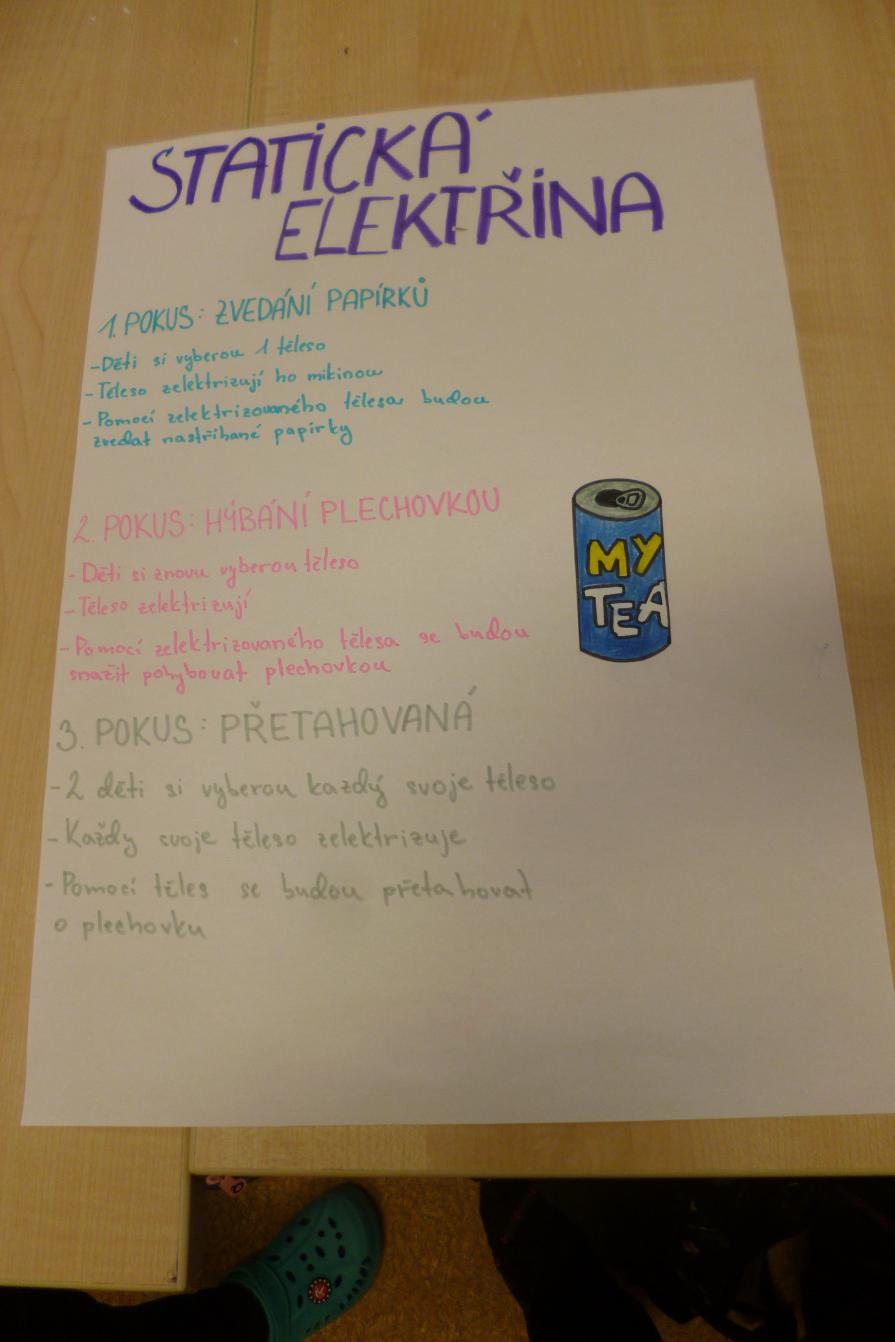 STATICKÁ
ELEKTŘINA
1. POKUS: ZVEDÁNÍ PAPÍRKŮ
- Děti si vyberou 1 těleso
- Těleso zelektrizují ho mikinou
- Pomocí zelektrizovaného tělesa budou
zvedat nastříhané papírky
2. POKUS: HÝBÁNÍ PLECHOVKOU
- Děti si znovu vyberou těleso
- Těleso zelektrizují
- Pomocí zelektrizovaného tělesa se budou
snažit pohybovat plechovkou
MY
TEA
3. POKUS: PŘETAHOVANÁ
- 2 děti si vyberou každý svoje těleso
- Každy svoje těleso zelektrizuje
- Pomocí těles se budou přetahovat
o plechovku